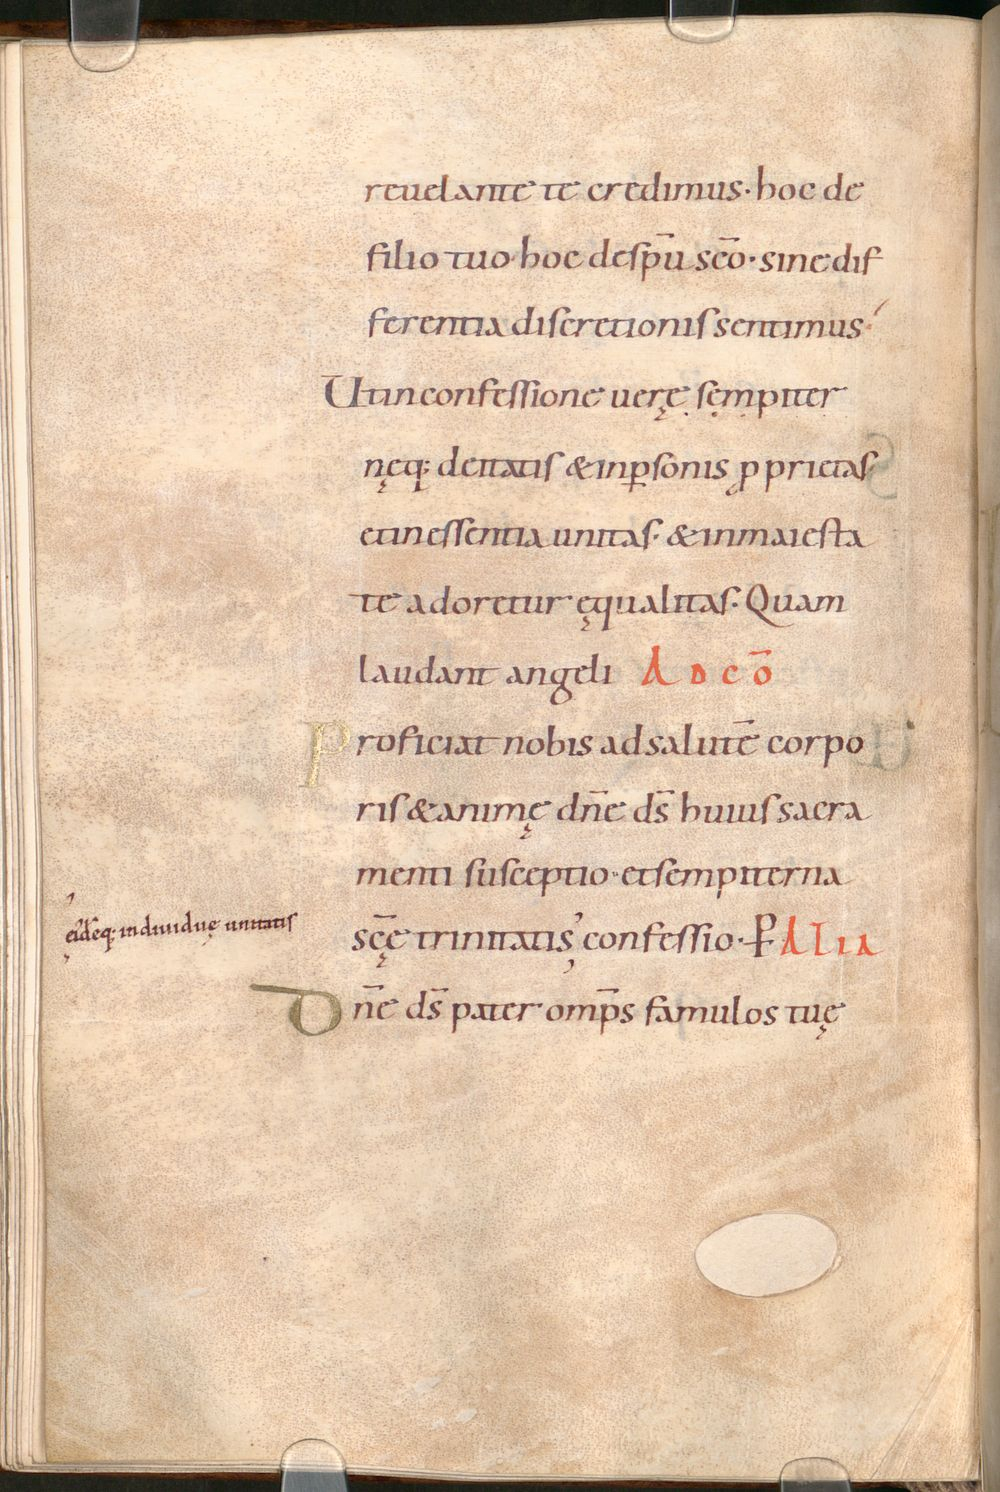 reuelante te credimus· hoc de
filio tuo hoc despū scō· sine dif
ferentia discretionis sentimus·
Ut in confessione uerę sempiter
nęq; deitatis & in ꝑsonis ꝓprietas·
et in essentia unitas· & in maiesta
te adoretur ęqualitas· Quam
laudant angeli AD CŌ
Proficiat nobis ad salutē corpo
ris & animę dn̄e ds̄ huius sacra
menti susceptio· et sempiterna
eidēq; indiuiduę unitatis
scę̄ trinitatis confessio· P̄ ALIA
Dn̄e ds̄ pater omp̄s famulos tuę